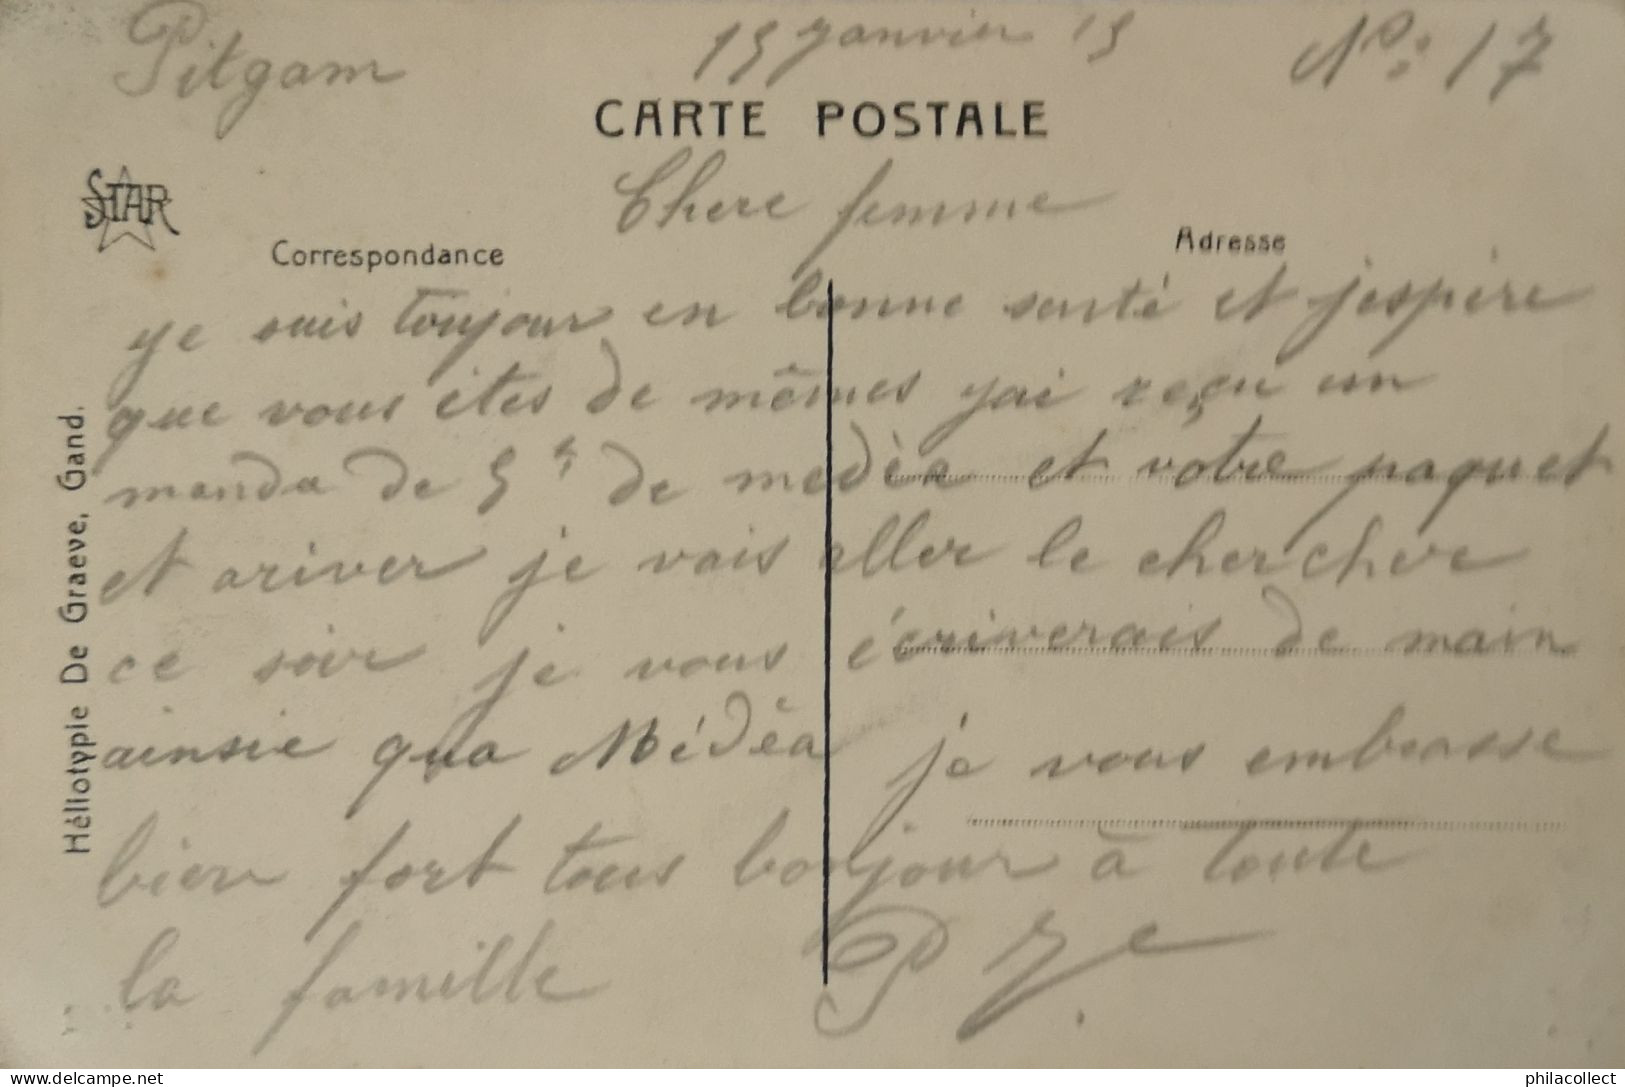 Pitgam 15 Janvier 15 No: 17
CARTE POSTALE
STAR
Chere femme
Correspondance
Adresse
je suis toujour en bonne santé et jespère
que vous êtes de mêmes jai reçu un
manda de 5 f de medèa et votre paquet
et ariver je vais aller le chercher
ce soir je vous écriverais de main
ainsie qua Médéa je vous embrasse
bien fort tous bonjour à toute
la famille
Héliotypie De Graeve, Gand.
philacollect